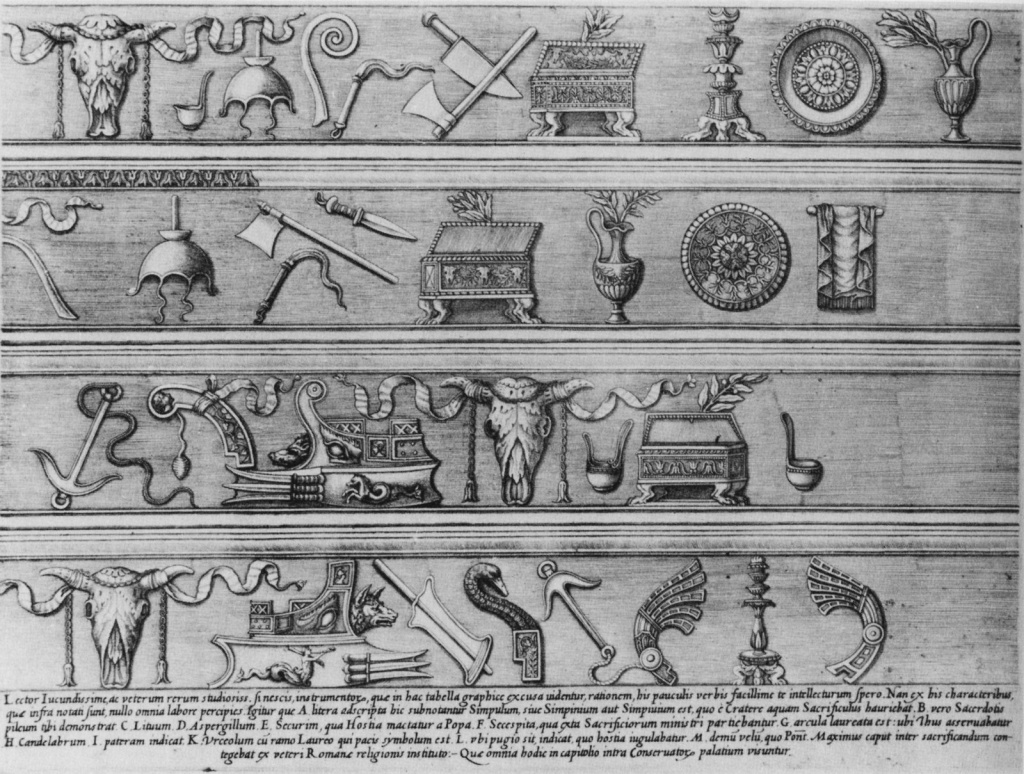 Lector Iucundissime, ac veterum rerum studiosiss. si nescis, instrumentorꝫ, que in hac tabella graphice excusa uidentur, rationem, his pauculis verbis facillime te intellecturum spero. Nan ex his characteribus,
que infra notati sunt, nullo omnia labore percipies. Igitur que A. litera adscripta hic subnotantur Simpulum, siue Simpinium aut Simpuuium est, quo è Cratere aquam Sacrificulus hauriebat. B. vero Sacerdotis
pileum tibi demonstrat. C. Lituum. D. Aspergillum. E. Securim, qua Hostia mactatur a Popa. F. Secespita, qua exta Sacrificiorum ministri partiebantur. G. arcula laureata est: ubi Thus asseruabatur
H. Candelabrum. I. pateram indicat. K. Vrceolum cū ramo Laureo qui pacis symbolum est. L. vbi pugio sit, indicat, quo hostia iugulabatur. M. demū velū, quo Pont. Maximus caput inter sacrificandum con-
tegebat ex veteri Romane religionis instituto:- Que omnia hodie in capitolio intra Conseruatorꝫ palatium visuntur.